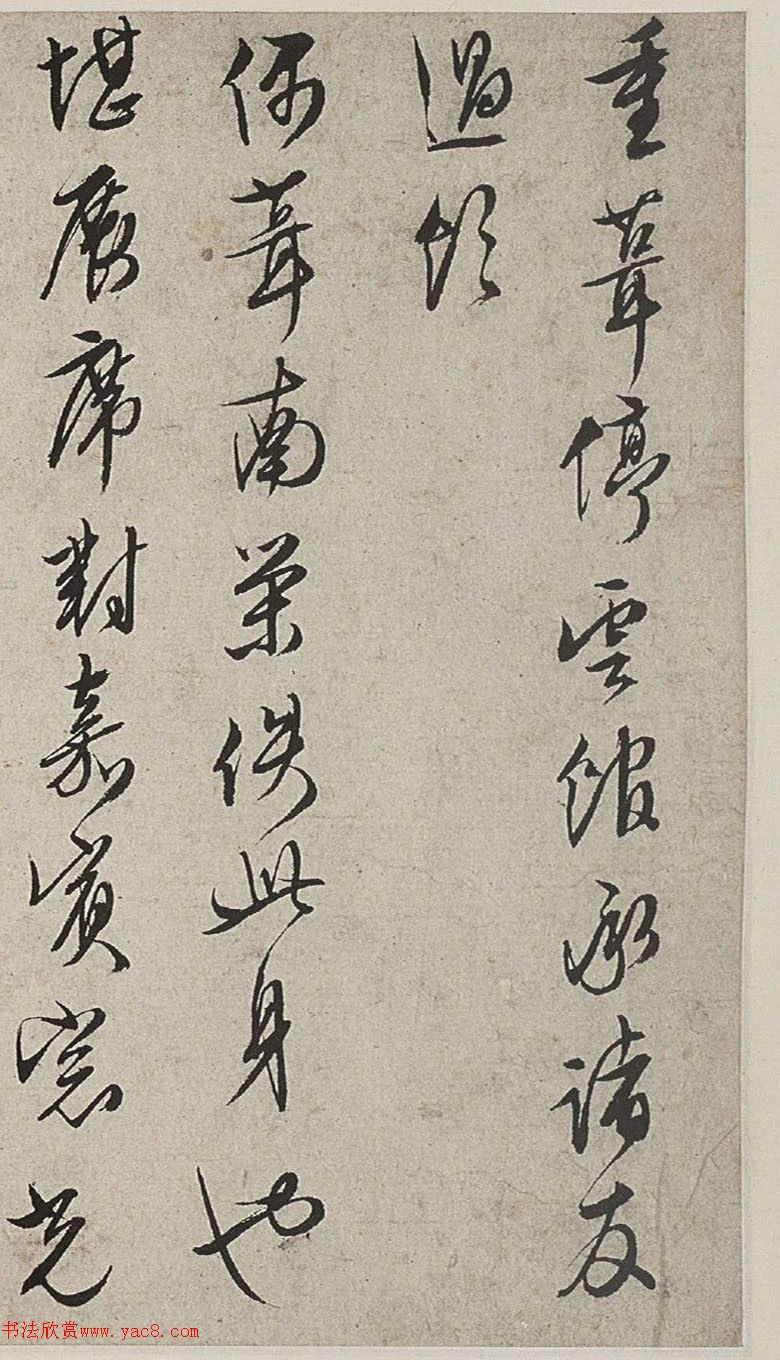 重葺停雲館承諸友
過飲
偶葺南榮佚此身也
堪展席對嘉賓窓光
书法欣赏www.yac8.com